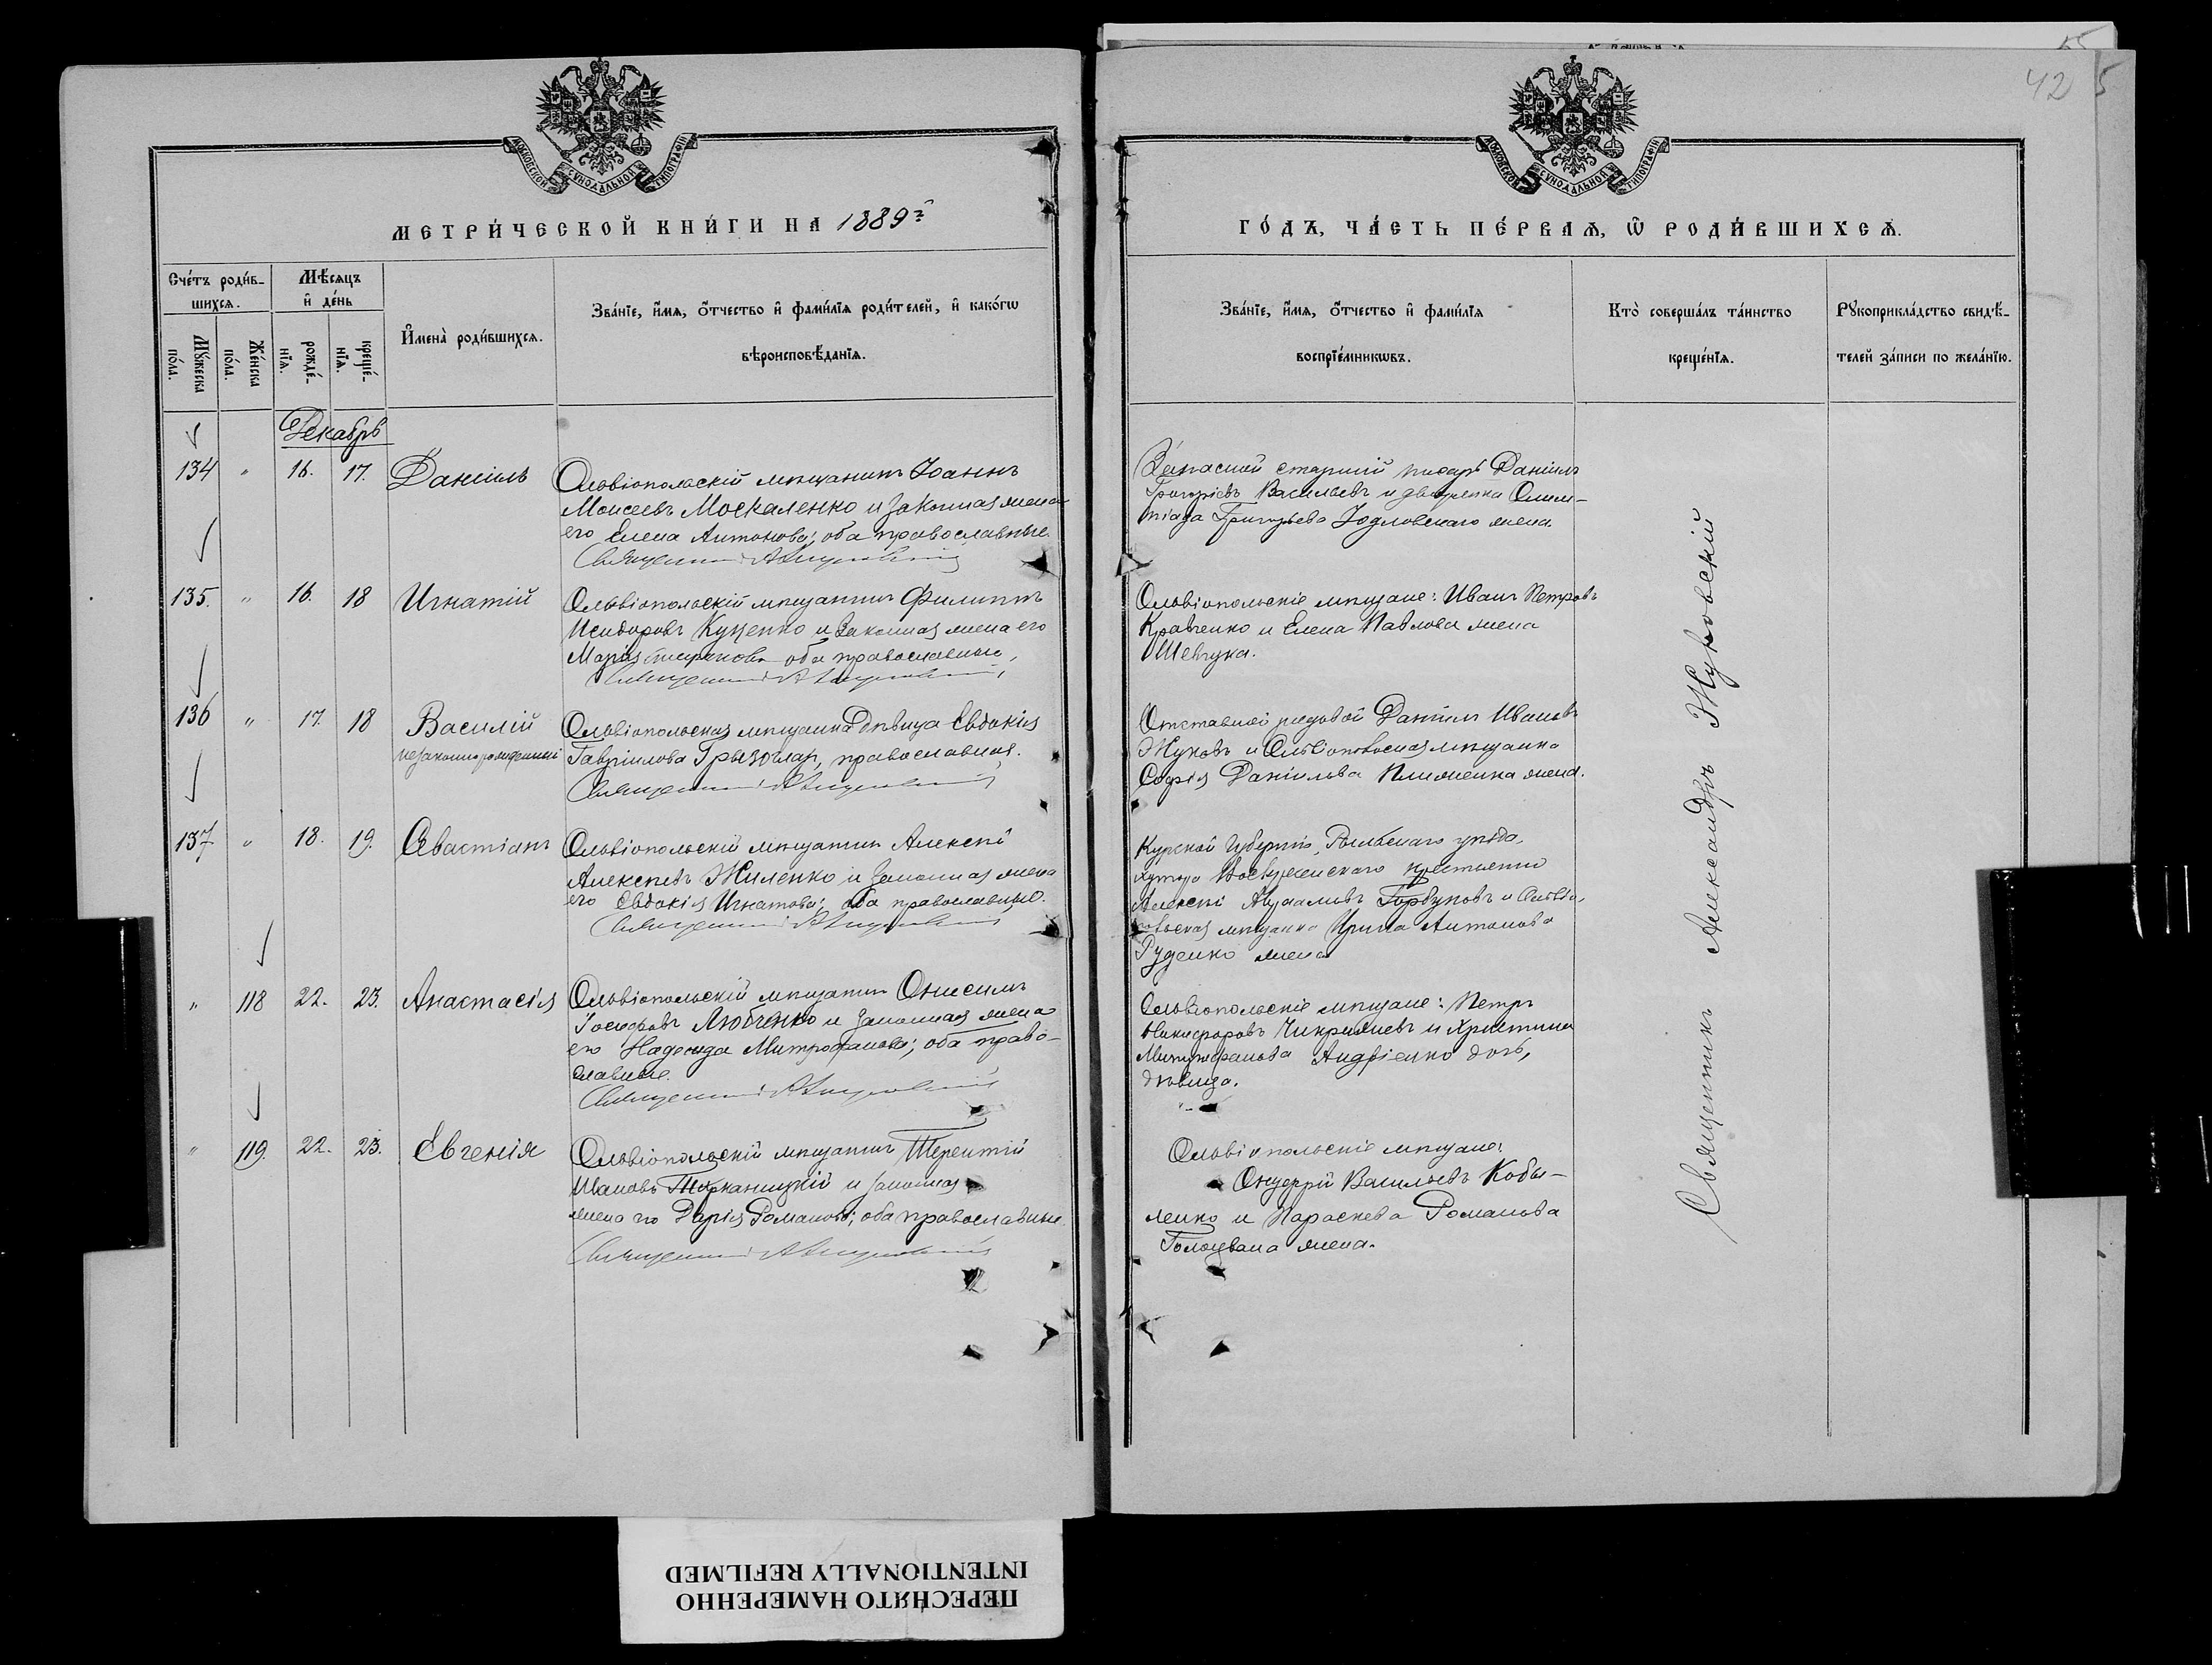 42
МОСКОВСКОЙ СѴНОДАЛЬНОЙ ТИПОГРАФІИ
МОСКОВСКОЙ СѴНОДАЛЬНОЙ ТИПОГРАФІИ
МЕТРИ́ЧЕСКОЙ КНИ́ГИ НА 1889й
ГО́ДЪ, ЧА́СТЬ ПЕ́РВАѦ, Ѡ҆ РОДИ́ВШИХСѦ.
Сче́тъ роди́в-
шихсѧ.
Мꙋ́жеска
по́ла.
Же́нска
по́ла.
Мѣ́сѧцъ
и҆ де́нь
рожде́-
нїѧ.
креще́-
нїѧ.
И҆мена̀ роди́вшихсѧ.
Зва́нїе, и҆́мѧ, ѻ҆́тчество и҆ фами́лїѧ роди́телей, и҆ како́гѡ
вѣроисповѣ́данїѧ.
Зва́нїе, и҆́мѧ, ѻ҆́тчество и҆ фами́лїѧ
воспрїе́мникѡвъ.
Кто̀ соверша́лъ та́инство
креще́нїѧ.
Рꙋкоприкла́дство свидѣ́-
телей за́писи по жела́нїю.
Декабрь
134 " 16. 17. Даніилъ
Ольвіопольскій мѣщанинъ Іоаннъ
Моисеевъ Москаленко и законная жена
его Елена Антонова; оба православные.
Священникъ А Жуковскій
Запасный старшій писарь Даніилъ
Григоріевъ Васильевъ и дворянка Олим-
піада Григорьева Іодловскаго жена.
135. " 16. 18 Игнатій
Ольвіопольскій мѣщанинъ Филиппъ
Исидоровъ Куценко и законная жена его
Марія оба православные,
Священникъ А Жуковскій
Ольвіопольскіе мѣщане: Иванъ Петровъ
Кравченко и Елена Павлова жена
Шевчука.
136 " 17. 18 Василій
незаконнорожденный
Ольвіопольская мѣщанка Дѣвица Евдокія
Гавріилова Грызоглар, православная.
Священникъ А Жуковскій
Отставной рядовой Даніилъ Ивановъ
Жуковъ и Ольвіопольская мѣщанка
Софія Даніилова жена.
137 " 18. 19. Севастіанъ
Ольвіопольскій мѣщанинъ Алексѣй
Алексѣевъ Жиленко и законная жена
его Евдокія Игнатова; оба православные.
Священникъ А Жуковскій
Курской Губерніи, Рыльскаго уѣзда,
хутора Воскресенскаго крестьянинъ
Алексѣй Горбуновъ и Ольвіо-
польская мѣщанка Ирина Антонова
Руденко жена
" 118 22. 23. Анастасія
Ольвіопольскій мѣщанинъ Онисимъ
Любченко и законная жена
его Надежда Митрофанова; оба право-
славные.
Священникъ А Жуковскій
Ольвіопольскіе мѣщане: Петръ
Никифоровъ и Христина
Митрофанова Андріенко дочь,
дѣвица.
" 119. 22. 23. Евгенія
Ольвіопольскій мѣщанинъ Терентій
Ивановъ и законная
жена его Дарія Романова; оба православные
Священникъ А Жуковскій
Ольвіопольскіе мѣщане:
Онуфрій Васильевъ Кобы-
ленко и Параскева Романова
Голоцвана жена.
Священникъ Александръ Жуковскій
ПЕРЕСНЯТО НАМЕРЕННО
INTENTIONALLY REFILMED